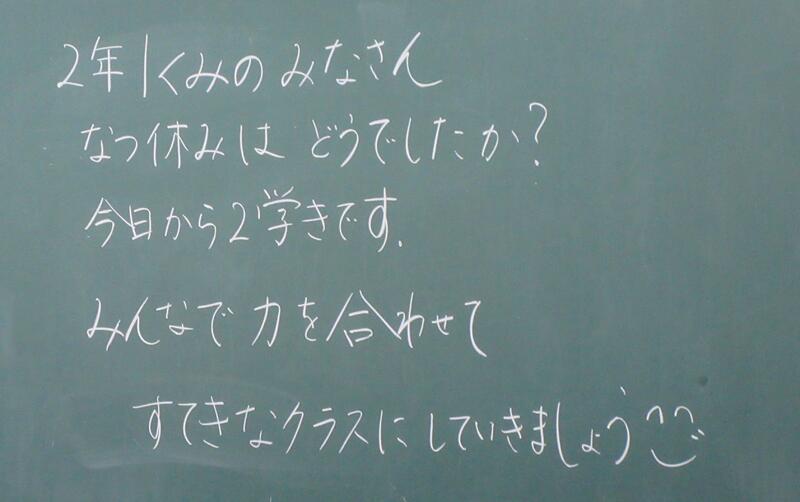 2年1くみの みなさん
なつ休みは どうでしたか?
今日から2学きです.
みんなで 力を合わせて
すてきなクラスに していきましょう